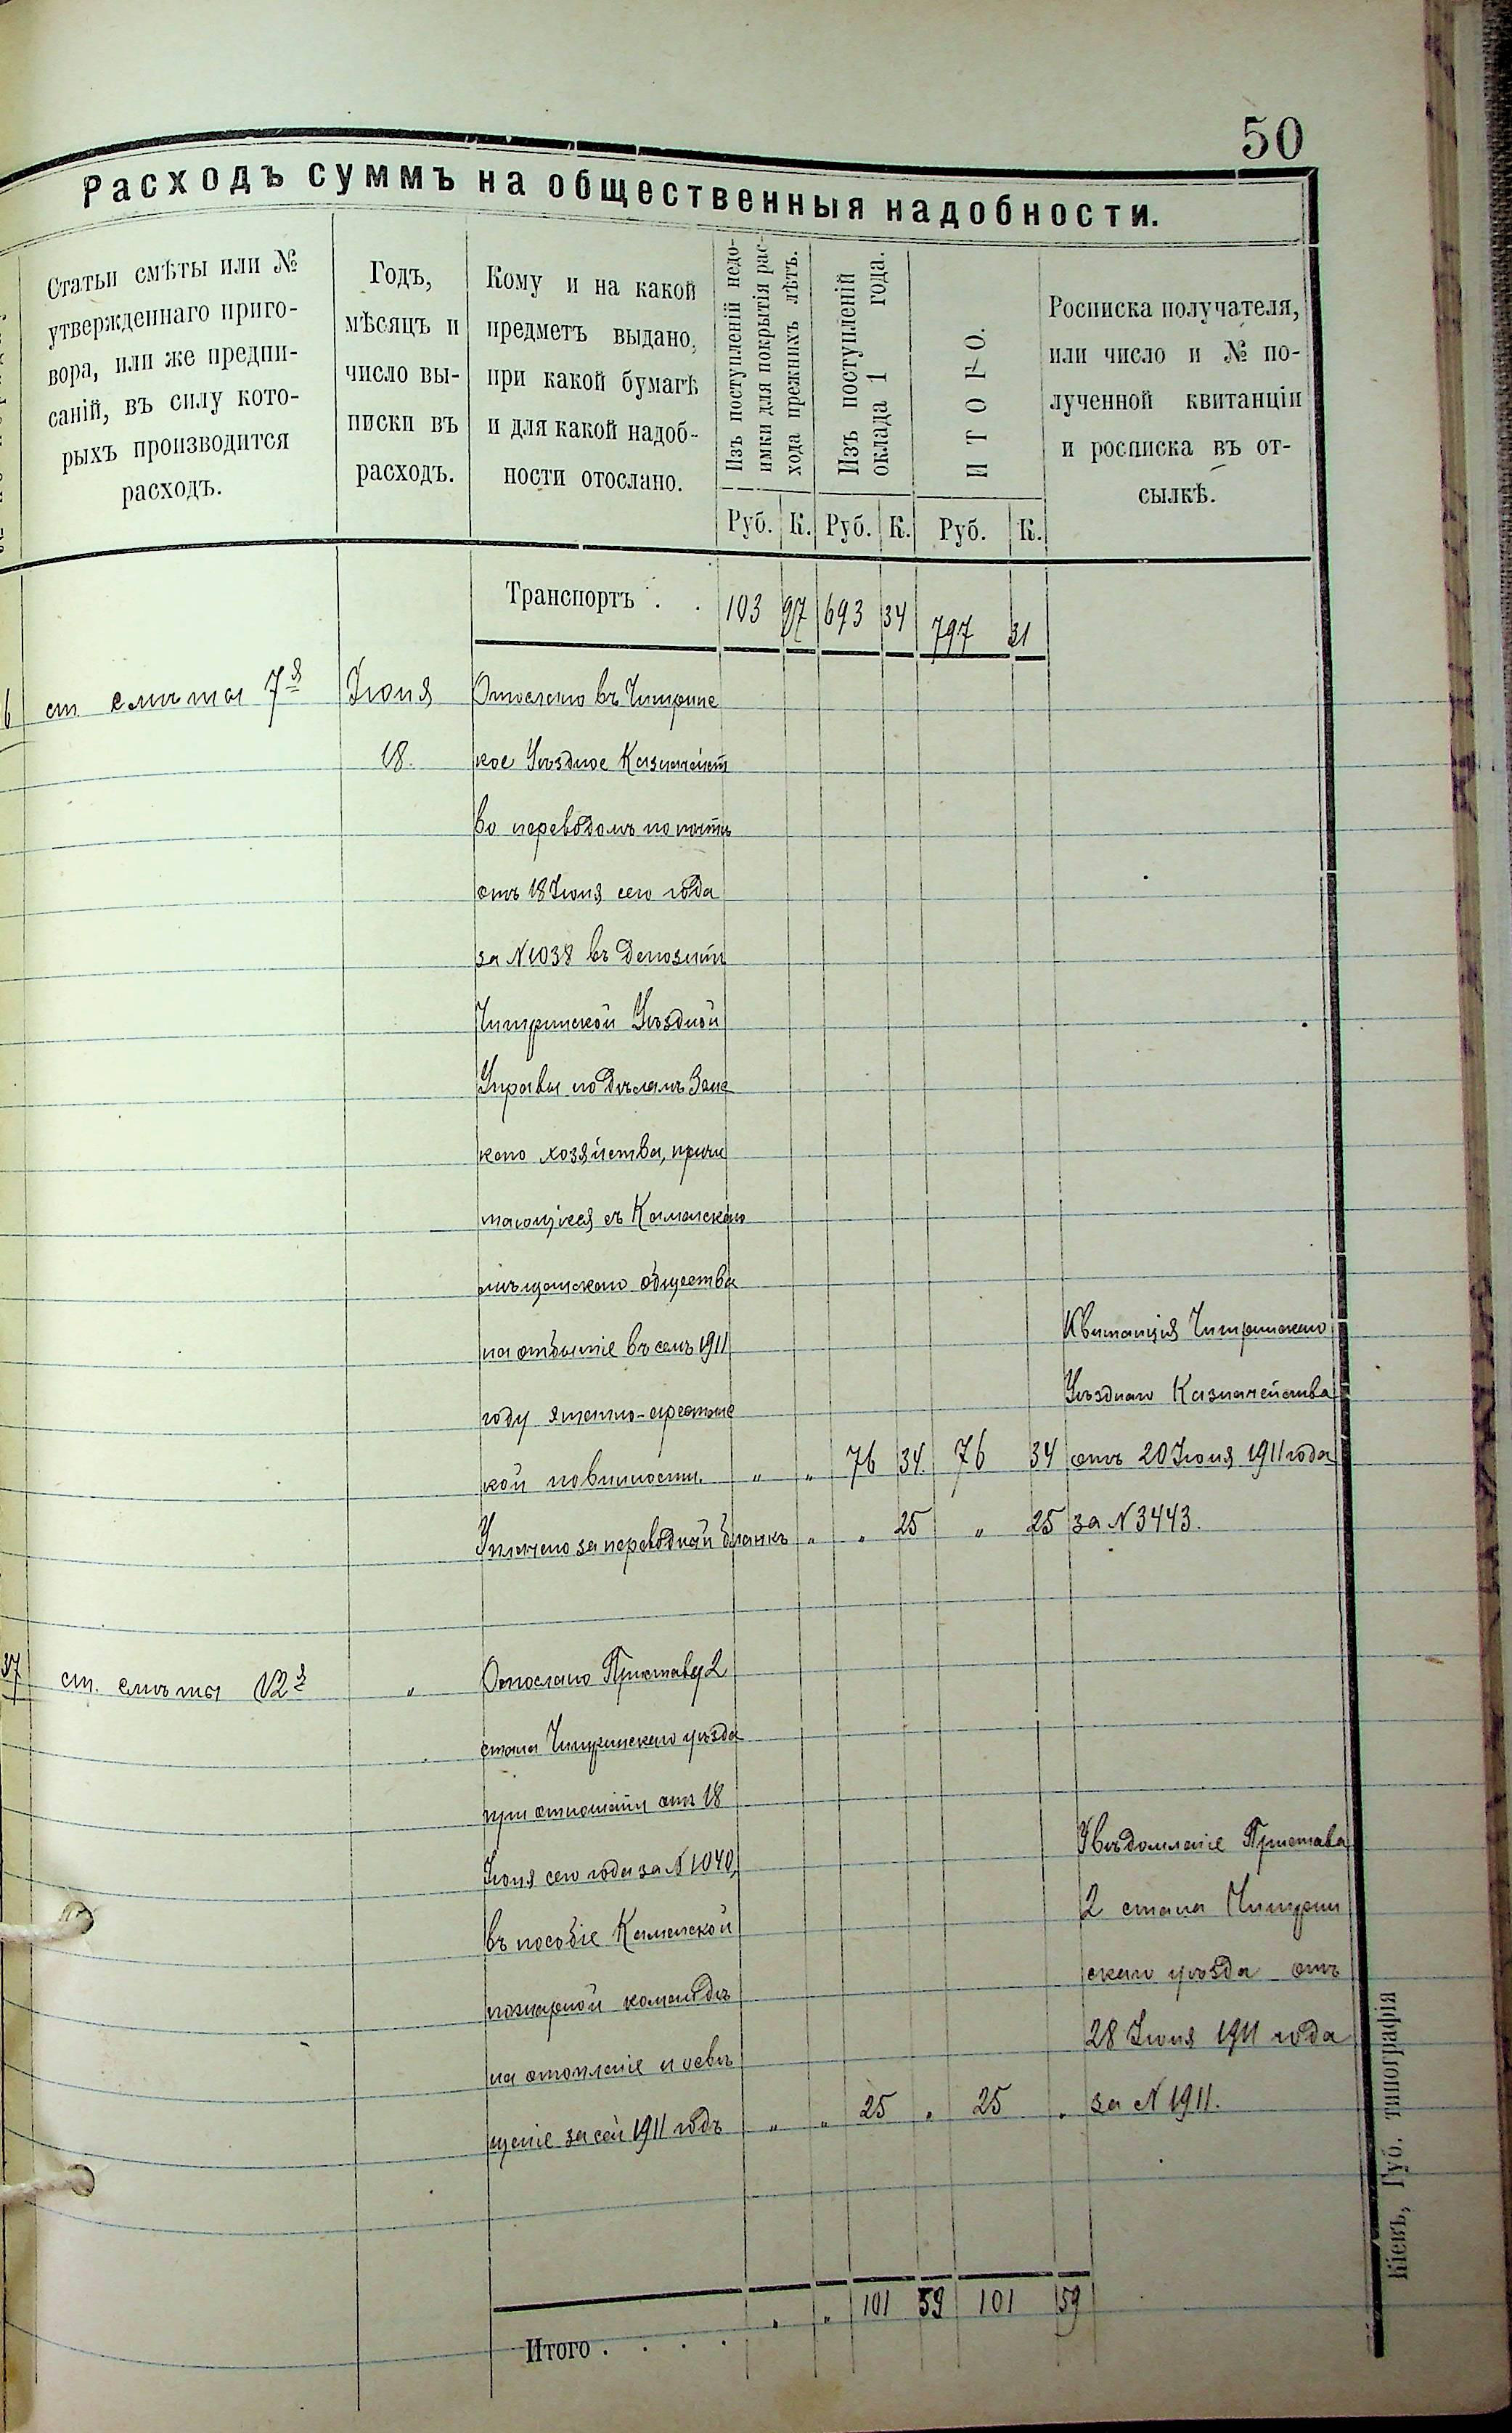 50
Расходъ суммъ на общественныя надобности.
Статьи смѣты или №
утвержденнаго приго-
вора, или же предпи-
саній, въ силу кото-
рыхъ производится
расходъ.
Годъ,
мѣсяцъ и
число вы-
писки въ
расходъ.
Кому и на какой
предметъ выдано,
при какой бумагѣ
и для какой надоб-
ности отослано.
Изъ поступленій недо-
имки для покрытія рас-
хода прежнихъ лѣтъ.
Изъ поступленій
оклада 1 года.
ИТОГО.
Росписка получателя,
или число и № по-
лученной квитанціи
и росписка въ от-
сылкѣ.
Руб. К. Руб. К. Руб. К.
Транспортъ . . 103 97 693 34 797 31
6 ст. смѣты 7я Іюня Отослано въ Чигринс
18. кое Уѣздное Казначейст
во переводомъ по почтѣ
отъ 18 Іюня сего года
за N 1038 въ депозитъ
Чигринской Уѣздной
Управы по дѣламъ Земс
каго хозяйства, причи
тающіяся съ Каменскаго
мѣщанскаго общества
на отбытіе въ семъ 1911
Квитанція Чигринскаго
году этапно-арестанс
Уѣзднаго Казначейства
кой повинности. " " 76 34. 76 34 отъ 20 Іюня 1911 года
Уплачено за переводной бланкъ " " 25 " 25 за N 3443.
37 ст. смѣты 12я " Отослано Приставу 2
стана Чигринскаго уѣзда
при отношеніи отъ 18
Іюня сего года за N 1040,
Увѣдомленіе Пристава
въ пособіе Каменской
2 стана Чигрин
пожарной командѣ
скаго уѣзда отъ
на отопленіе и освѣ
28 Іюня 1911 года
щеніе за сей 1911 годъ " " 25 " 25 " за N 1911.
Итого . . . . " " 101 59 101 59
Кіевъ, Губ. типографія